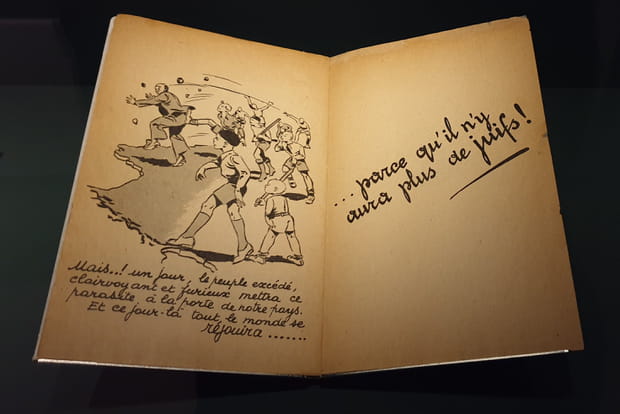 Mais..! un jour, le peuple excédé,
clairvoyant et furieux mettra ce
parasite, à la porte de notre pays.
Et ce jour-là tout le monde se
réjouira .......
... parce qu'il n'y
aura plus de juifs!